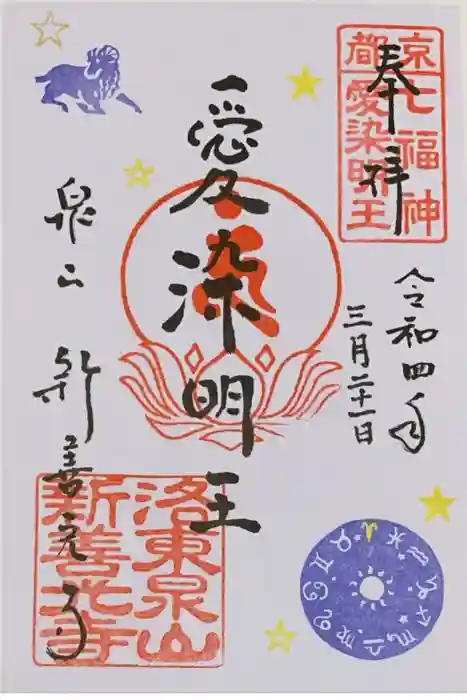 奉拝
京七福神
都愛染明王
令和四年
三月二十一日
愛染明王
泉山 新善光寺
洛東泉山
新善光寺